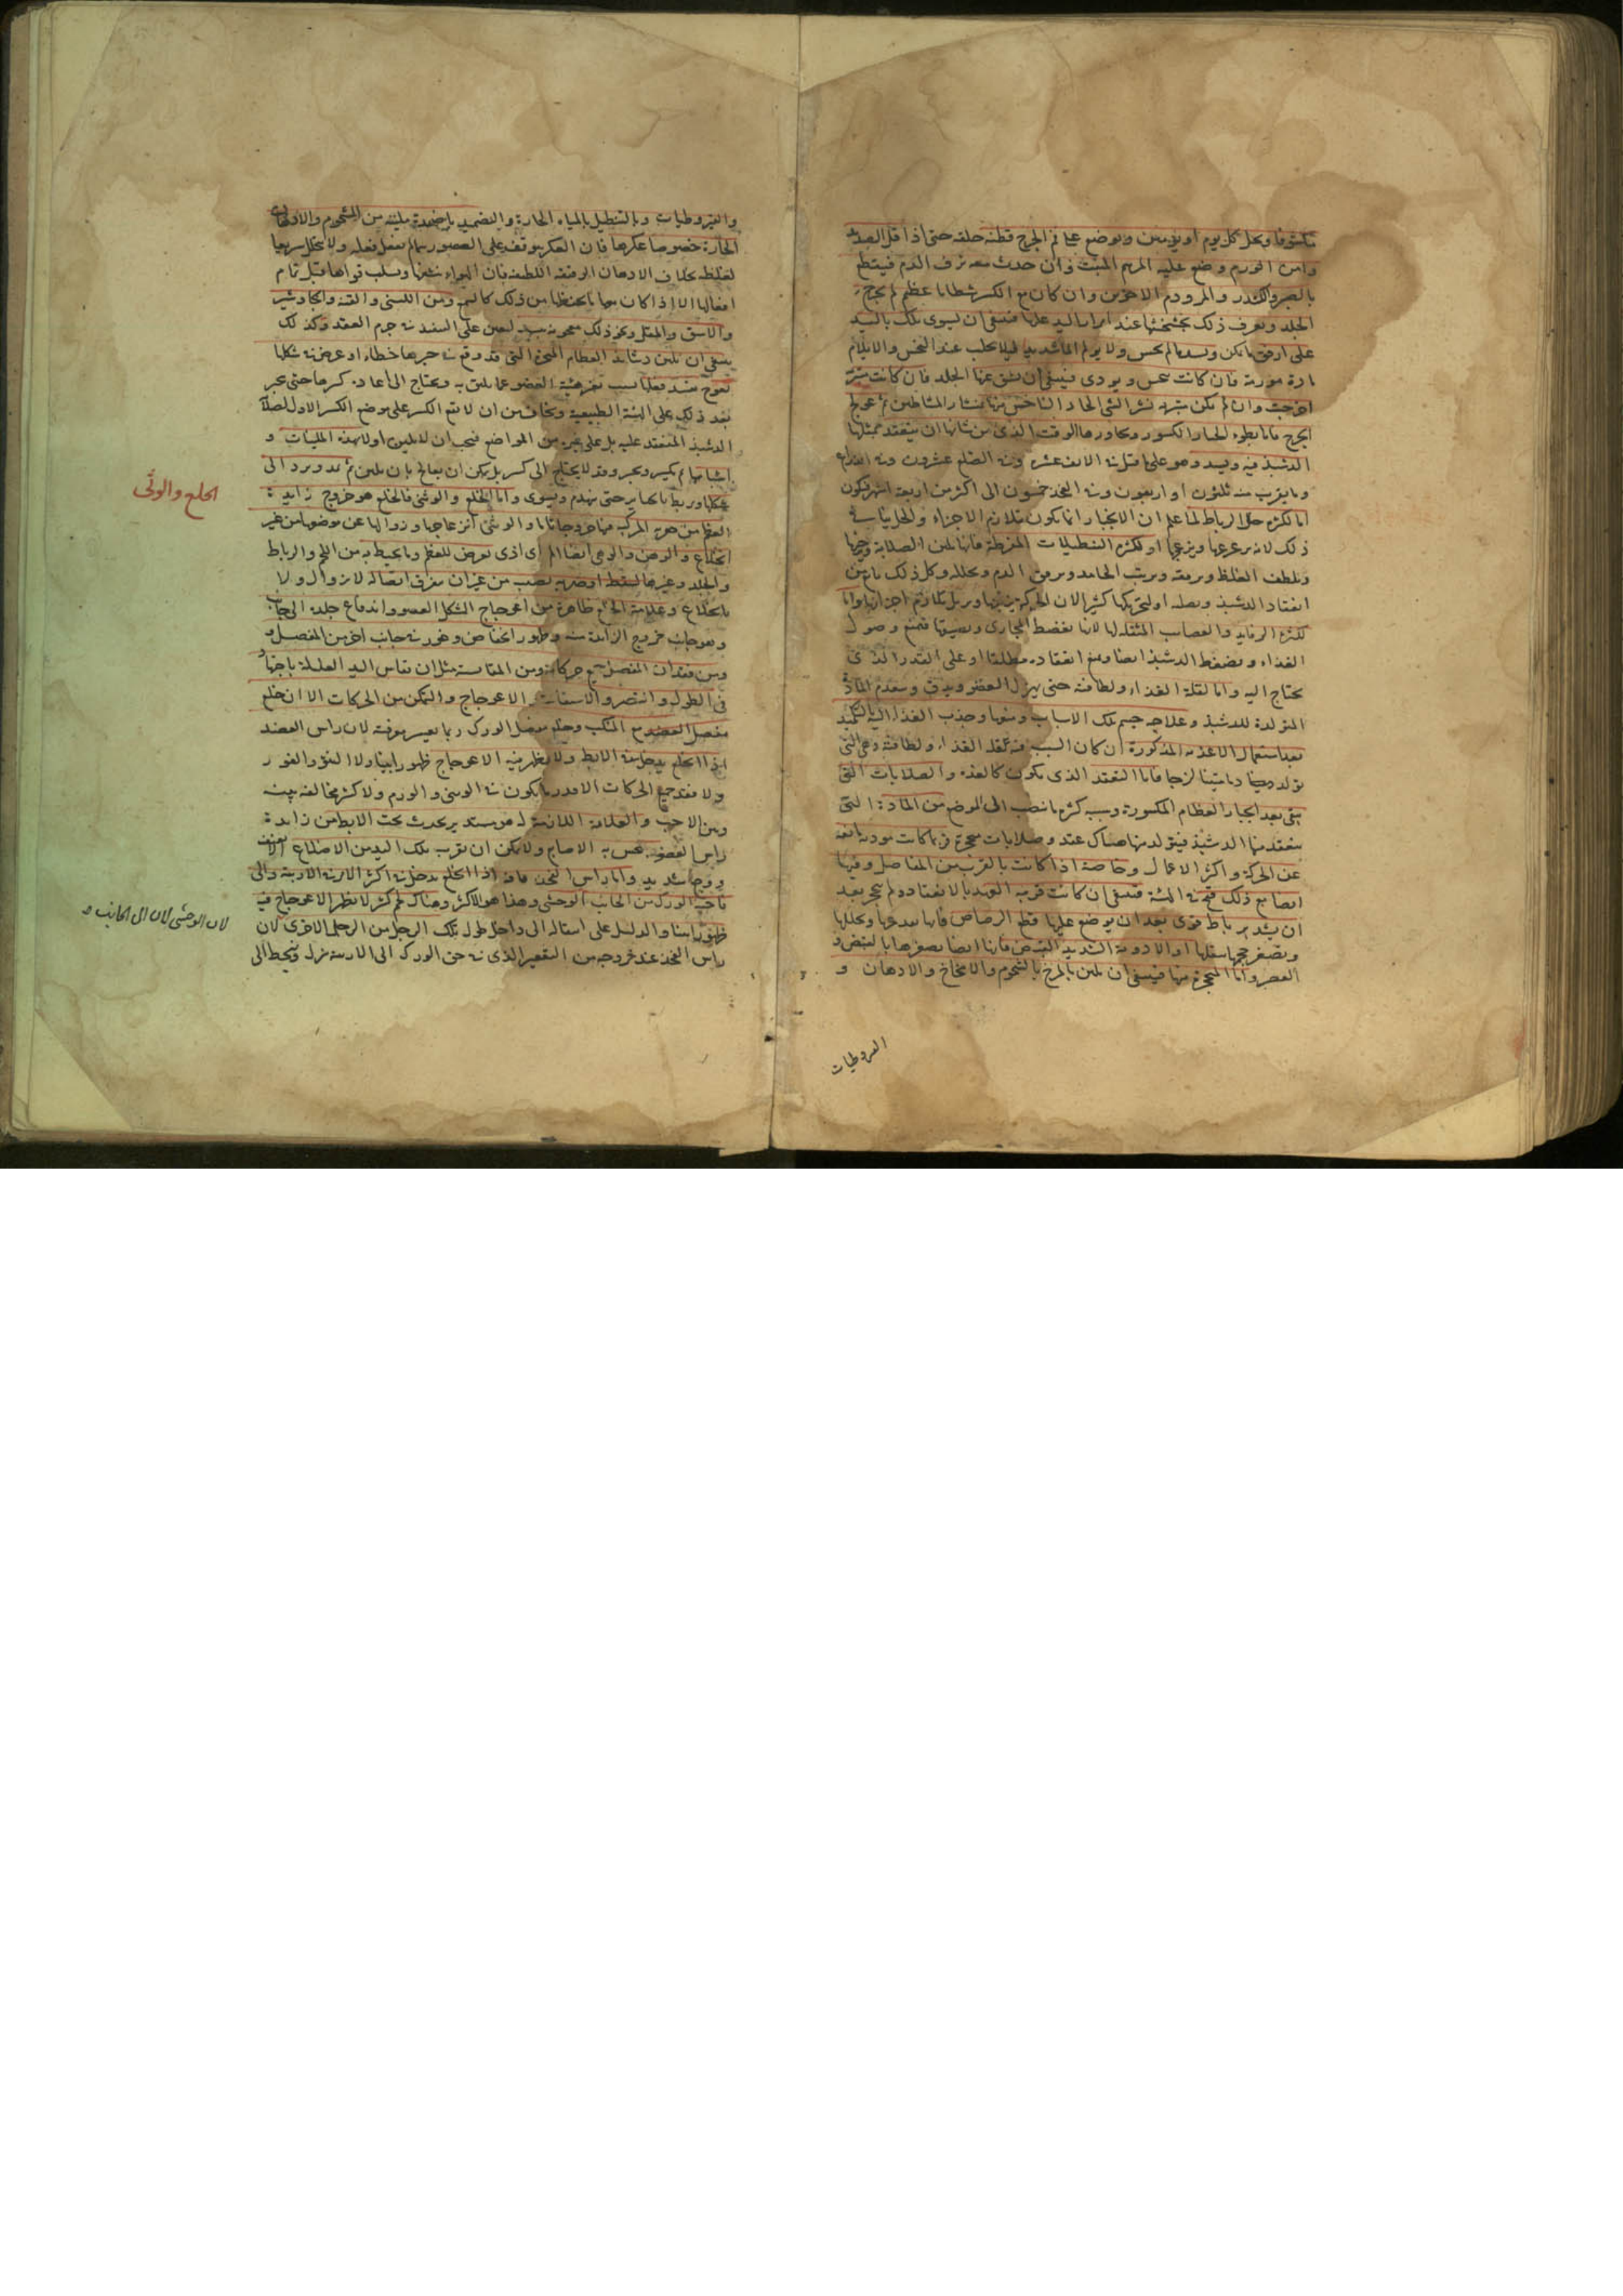 مكشوفا ويحل كل يوم او يومين ويوضع على فم الجرح قطنة خلقة حتى اذا قل الصديد
وامن الورم وضع عليه المرهم المنبت وان حدث معه نزف الدم فيقطع
بالصبر والكندر والمر ودم الاخوين وان كان مع الكسر شظايا عظم لم يخرج
الجلد ويعرف ذلك بخشخشتها عند امرار اليد عليها فينبغي ان يسوى تلك باليد
على ارفق ما يكن ويشد ما لم يحس ولا يولم الما شديدا ليلا يجلب عند النخس والايلام
مادة مورمة فان كانت تنخس ويوذى فينبغي ان يشق عنها الجلد فان كانت متبرية
اخرجت وان لم يكن متبرية نشر الشى الحاد الناخس منها بمنشار المشاطين ثم عولج
الجرح فاما بطوء انجبار الكسور ومجاوزتها الوقت الذى من شانها ان ينعقد بمثلها
الدشبذ فيه ويشد وهو على ما قيل فى الانف عشرة وفى الضلع عشرون وفى الذراع
وما يقرب منه ثلثون او اربعون وفى الفخذ خمسون الى اكثر من اربعة اشهر فيكون
اما لكثرة حل الرباط لما علم ان الانجبار انما يكون بتلازم الاجزاء والحل ينافى
ذلك لانه يزعزعها ويزعجها او لكثرة التنطيلات المفرطة فانها تلين الصلابة وتحرها
وتلطف الغلظ ويرققه ويذيب الجامد ويرقق الدم ويحلله وكل ذلك مانع من
انعقاد الدشبذ وتصلبه او لتحريكها كثيرا لان الحركة تزعجها ويزيل تلازم اجزائها واما
لكثرة الرفايد والعصايب المثقلة لها لانها تضغط المجارى وتضيقها فتمنع وصول
الغذاء ويضغط الدشبذ ايضا ويمنع انعقاده مطلقا او على القدر الذى
يحتاج اليه واما لقلة الغذاء ولطافته حتى يهزل العضو ويدق ويعدم المادة
المتولدة للدشبذ وعلاجه حسم تلك الاسباب ومنعها وجذب الغذاء اليه بالتكميد
بعد استعمال الاغذية المذكورة ان كان السبب فيه قلة الغذاء ولطافته وهى التى
تولد دما متينا لزجا فاما التعقد الذى يكون كالغدد والصلابات التى
تبقى بعد انجبار العظام المكسورة وسببه كثرة ما ينصب الى الموضع من المادة التى
ينعقد منها الدشبذ فيتولد منها هناك عقد وصلابات متحجرة فربما كانت موذية مانعة
عن الحركة واكثر الاعمال وخاصة اذا كانت بالقرب من المفاصل وفيها
ايضا مع ذلك قبح فى الهيئة فينبغي ان كانت قريبة العهد بالانعقاد ولم يتحجر بعد
ان يشد برباط قوى بعد ان يوضع عليها قطع الرصاص فانها يفدغها ويحللها
ويصغر حجمها بثقلها او الادوية الشديدة القبض فانها ايضا يصغرها بالقبض و
العصر واما المتحجرة منها فينبغي ان تلين بالمرخ بالشحوم والامخاخ والادهان و
القيروطيات
والقيروطيات وبالتنطيل بالمياه الحارة والتضميد باضمدة ملينة من الشحوم والادهان
الحارة خصوصا عكرها فان العكر يوقف على العضو ريثما يفعل فعله ولا يتحلل سريعا
لغلظه بخلاف الادهان الرقيقة اللطيفة فان الهواء ينشفها ويسلب قواها قبل تمام
افعالها الا اذا كان معها ما يحفظها من ذلك كالشمع ومن اللبنى والقنة والجاوشير
والاشق والمقل ونحو ذلك معجونة ليعين على النفوذ فى جرم العقد وكذلك
ينبغي ان تلين دشابذ العظام المعوجة التى قد وقع فى جبرها خطاء او عرض فى شكلها
تعوج يفسد فعلها بسبب تغير هيئة العضو عما يليق به ويحتاج الى اعادة كسرها حتى يجبر
بعد ذلك على الهيئة الطبيعية ويخاف من ان لا يقع الكسر على موضع الكسر الاول لصلابة
الدشبذ المنعقد عليه بل على غيره من المواضع فيجب ان تلين اولا بهذه الملينات و
اشباهها ثم يكسر ويجبر وقد لا يحتاج الى كسر بل يمكن ان يعالج بان تلين ثم يمد ويرد الى
شكلها وربط بالجباير حتى ينهدم ويستوى واما الخلع والوثى فالخلع هو خروج زايدة
العظم من حفرة المركب فيها خروجا تاما والوثى انزعاجها وزوالها عن موضعها من غير
انخلاع والوهن والوهى ايضا الم اى اذى يعرض للعظم وما يحيط به من اللحم والرباط
والجلد وغيرها لسقطة او ضربة تصيب من غير ان يتفرق اتصاله لا زوال ولا
بانخلاع وعلامة الخلع ظاهرة من اعوجاج الشكل العضو واندفاع جلده الى جانب
وهو جانب خروج الزائدة منه وظهور انخفاض وغور فى جانب اخر من المفصل و
ومن فقدان المفصل جميع حركاته ومن المقايسة مثل ان تقاس اليد العليلة باختها
فى الطول والقصر والاستقامة والاعوجاج والتمكن من الحركات الا ان خلع
مفصل العضد مع المنكب وخلع مفصل الورك ربما تعسر معرفته لان راس العضد
اذا انخلع يدخل فى الابط ولا يظهر فيه الاعوجاج ظهورا بينا ولا النتو والغور
ولا يفقد جميع الحركات الا قدر ما يكون فى الوثى والورم ولا كثير مخالفة بينه
وبين الاخرى والعلامة اللازمة له هو مستدير يحدث تحت الابط من زايدة
راس العضد يحس به الاصابع ولا يمكن ان تقرب تلك اليد من الاضلاع الا بعنف
ووجع شديد واما راس الفخذ فانه اذا انخلع يدخل فى اكثر الامر فى الاربية والى
ناحية الورك من الجانب الوحشى وهذا هو الاكثر وهناك لحم كثير لا يظهر الاعوجاج فيه
ظهورا بينا والدليل على انتقاله الى داخل طول تلك الرجل من الرجل الاخرى لان
راس الفخذ عند خروجه من التقعير الذى فى حق الورك الى الاربية ينزل وينحط الى
الخلع والوثى
لان الوحشى لان الى الجانب و